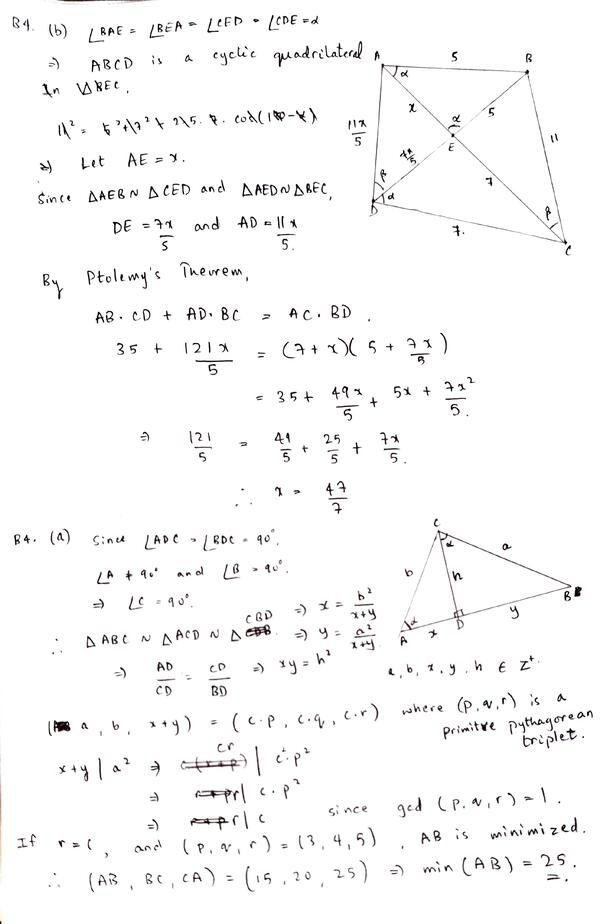 B4. (b) ∠BAE = ∠BEA = ∠CED = ∠CDE = α
⇒ ABCD is a cyclic quadrilateral
In △BEC,
11² = 5² + 7² + 2·5·7·cos(180-α)
⇒ Let AE = x.
Since △AEB ~ △CED and △AED ~ △BEC,
DE = 7x/5 and AD = 11x/5.
By Ptolemy's Theorem,
AB·CD + AD·BC = AC·BD.
35 + 121x/5 = (7+x)(5 + 7x/5)
= 35 + 49x/5 + 5x + 7x²/5.
⇒ 121/5 = 49/5 + 25/5 + 7x/5.
∴ x = 47/7
A 5 B
α
x α 5
11x/5 E 11
7x/5 7
β
D α β
7. C
B4. (a) Since ∠ADC = ∠BDC = 90°,
∠A ≠ 90° and ∠B ≠ 90°.
⇒ ∠C = 90°.
∴ △ABC ~ △ACD ~ △CBD ⇒ x = b²/x+y
⇒ y = a²/x+y
⇒ AD/CD = CD/BD ⇒ xy = h²
C
α a
b h
B
A α x D y
a, b, x, y, h ∈ Z⁺.
(a, b, x+y) = (c·p, c·q, c·r) where (p,q,r) is a
primitive pythagorean
triplet.
x+y | a² ⇒ cr | c²·p²
⇒ r | c·p²
⇒ r | c since gcd (p,q,r) = 1.
If r = c, and (p,q,r) = (3,4,5), AB is minimized.
∴ (AB, BC, CA) = (15, 20, 25) ⇒ min (AB) = 25.